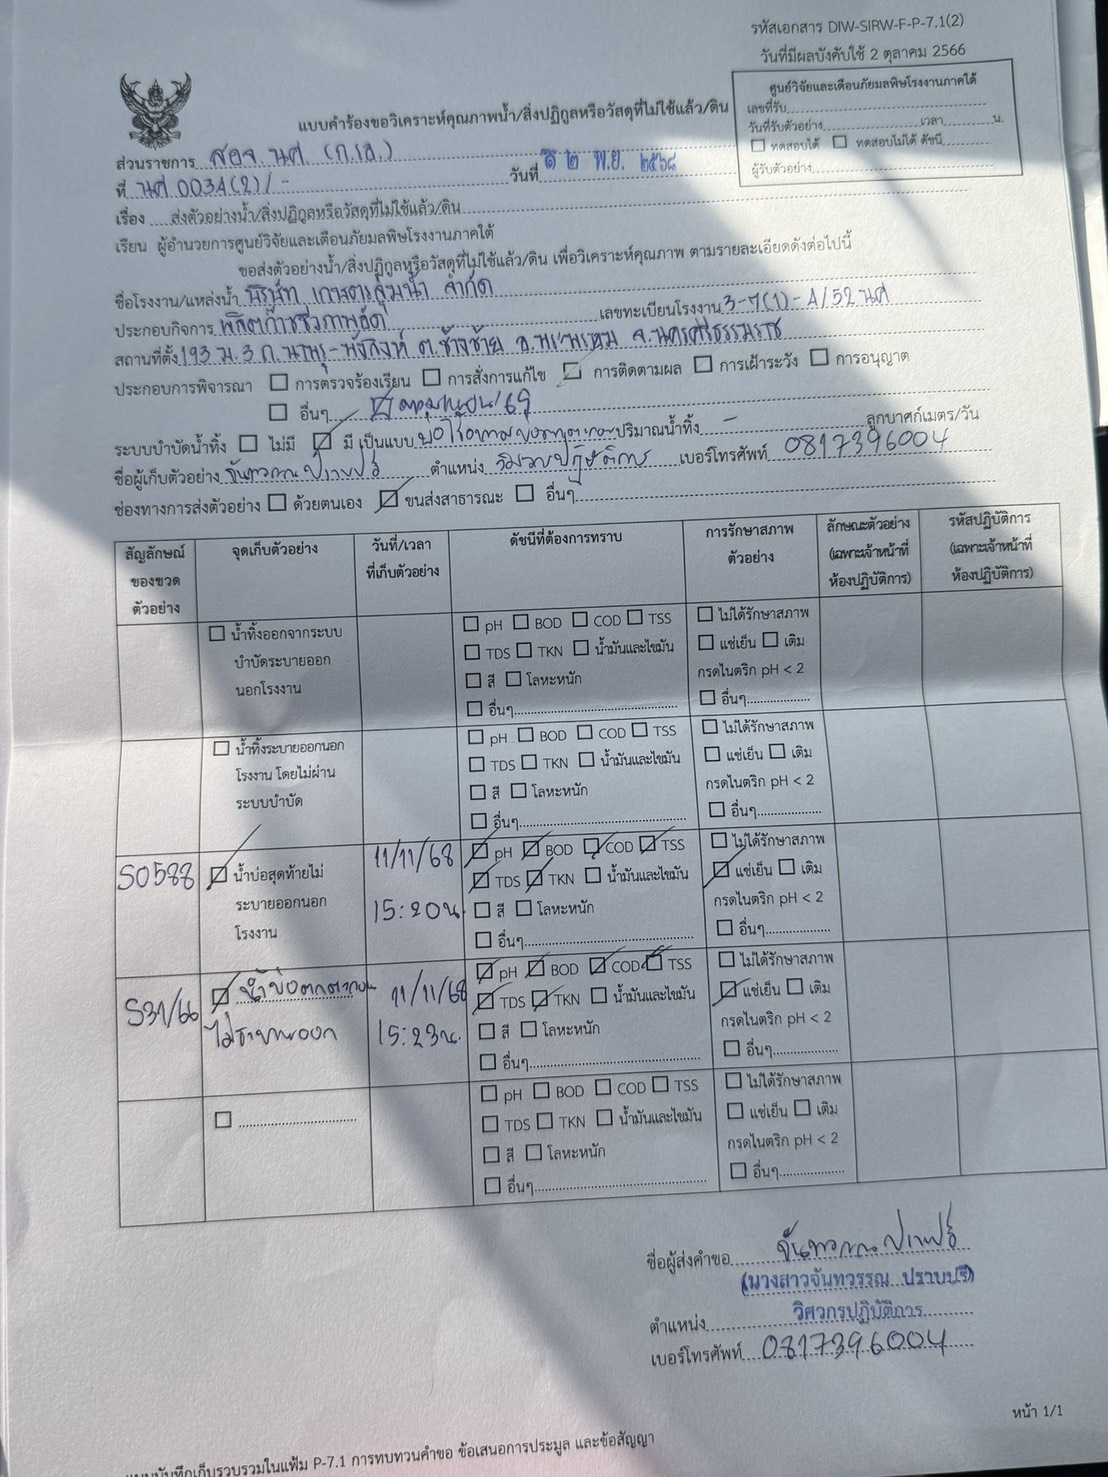 รหัสเอกสาร DIW-SIRW-F-P-7.1(2)
วันที่มีผลบังคับใช้ 2 ตุลาคม 2566
ศูนย์วิจัยและเตือนภัยมลพิษโรงงานภาคใต้
เลขที่รับ
วันที่รับตัวอย่าง เวลา น.
ทดสอบได้ ทดสอบไม่ได้ ดัชนี
ผู้รับตัวอย่าง
แบบคำร้องขอวิเคราะห์คุณภาพน้ำ/สิ่งปฏิกูลหรือวัสดุที่ไม่ใช้แล้ว/ดิน
ส่วนราชการ สอจ.นศ (ก.รอ.)
ที่ นศ 0034(2)/- วันที่ ๑๒ พ.ย. ๒๕๖๘
เรื่อง ส่งตัวอย่างน้ำ/สิ่งปฏิกูลหรือวัสดุที่ไม่ใช้แล้ว/ดิน
เรียน ผู้อำนวยการศูนย์วิจัยและเตือนภัยมลพิษโรงงานภาคใต้
ขอส่งตัวอย่างน้ำ/สิ่งปฏิกูลหรือวัสดุที่ไม่ใช้แล้ว/ดิน เพื่อวิเคราะห์คุณภาพ ตามรายละเอียดดังต่อไปนี้
ชื่อโรงงาน/แหล่งน้ำ บริษัท เกษตรลุ่มน้ำ จำกัด
ประกอบกิจการ ผลิตก๊าซชีวภาพอัด เลขทะเบียนโรงงาน 3-7(1)-4/52 นศ
สถานที่ตั้ง 193 ม.3 ต.ช้างซ้าย อ.พระพรหม จ.นครศรีธรรมราช
ประกอบการพิจารณา การตรวจร้องเรียน การสั่งการแก้ไข การติดตามผล การเฝ้าระวัง การอนุญาต
อื่นๆ
ระบบบำบัดน้ำทิ้ง ไม่มี มี เป็นแบบ ปริมาณน้ำทิ้ง - ลูกบาศก์เมตร/วัน
ชื่อผู้เก็บตัวอย่าง จันทวรรณ ปราบปรี ตำแหน่ง วิศวกรปฏิบัติการ เบอร์โทรศัพท์ 0817396004
ช่องทางการส่งตัวอย่าง ด้วยตนเอง ขนส่งสาธารณะ อื่นๆ
สัญลักษณ์ของขวดตัวอย่าง จุดเก็บตัวอย่าง วันที่/เวลาที่เก็บตัวอย่าง ดัชนีที่ต้องการทราบ การรักษาสภาพตัวอย่าง ลักษณะตัวอย่าง (เฉพาะเจ้าหน้าที่ห้องปฏิบัติการ) รหัสปฏิบัติการ (เฉพาะเจ้าหน้าที่ห้องปฏิบัติการ)
น้ำทิ้งออกจากระบบ pH BOD COD TSS ไม่ได้รักษาสภาพ
บำบัดระบายออก TDS TKN น้ำมันและไขมัน แช่เย็น เติม
นอกโรงงาน สี โลหะหนัก กรดไนตริก pH < 2
อื่นๆ อื่นๆ
น้ำทิ้งระบายออกนอก pH BOD COD TSS ไม่ได้รักษาสภาพ
โรงงาน โดยไม่ผ่าน TDS TKN น้ำมันและไขมัน แช่เย็น เติม
ระบบบำบัด สี โลหะหนัก กรดไนตริก pH < 2
อื่นๆ อื่นๆ
S0588 น้ำบ่อสุดท้ายไม่ 11/11/68 pH BOD COD TSS ไม่ได้รักษาสภาพ
ระบายออกนอก 15:20น. TDS TKN น้ำมันและไขมัน แช่เย็น เติม
โรงงาน สี โลหะหนัก กรดไนตริก pH < 2
อื่นๆ อื่นๆ
S31/66 น้ำบ่อตกตะกอน 11/11/68 pH BOD COD TSS ไม่ได้รักษาสภาพ
ไม่ระบายออก 15:23น. TDS TKN น้ำมันและไขมัน แช่เย็น เติม
สี โลหะหนัก กรดไนตริก pH < 2
อื่นๆ อื่นๆ
pH BOD COD TSS ไม่ได้รักษาสภาพ
TDS TKN น้ำมันและไขมัน แช่เย็น เติม
สี โลหะหนัก กรดไนตริก pH < 2
อื่นๆ อื่นๆ
ชื่อผู้ส่งคำขอ จันทวรรณ ปราบปรี
(นางสาวจันทวรรณ ปราบปรี)
ตำแหน่ง วิศวกรปฏิบัติการ
เบอร์โทรศัพท์ 0817396004
หน้า 1/1
แบบบันทึกเก็บรวบรวมในแฟ้ม P-7.1 การทบทวนคำขอ ข้อเสนอการประมูล และข้อสัญญา